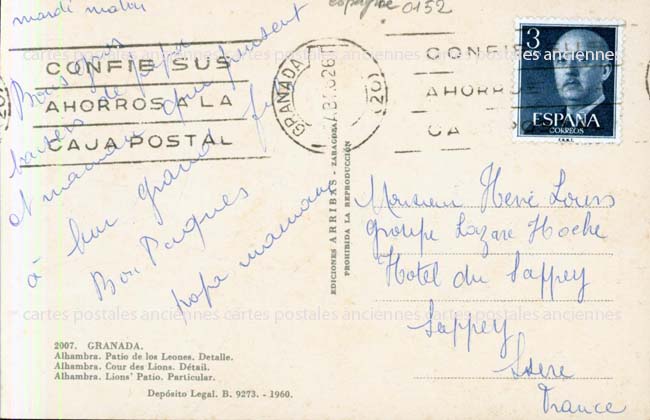 mardi matin
espagne 0152
Bons gros
baisers de papa
et maman qui pensent
à leur grand
Bon Pâques
papa maman
CONFIE SUS
AHORROS A LA
CAJA POSTAL
GRANADA
(20)
CONFIE SU
AHORROS
CA
3
ESPAÑA
CORREOS
cartes postales anciennes cartes postales anciennes cartes postales anciennes
cartes postales anciennes cartes postales anciennes cartes postales anciennes
EDICIONES ARRIBAS - ZARAGOZA
PROHIBIDA LA REPRODUCCIÓN
Monsieur Hervé Louis
groupe Lazare Hoche
Hotel du Sappey
Sappey
Isere
France
2007. GRANADA.
Alhambra. Patio de los Leones. Detalle.
Alhambra. Cour des Lions. Détail.
Alhambra. Lions' Patio. Particular.
Depósito Legal. B. 9273. - 1960.